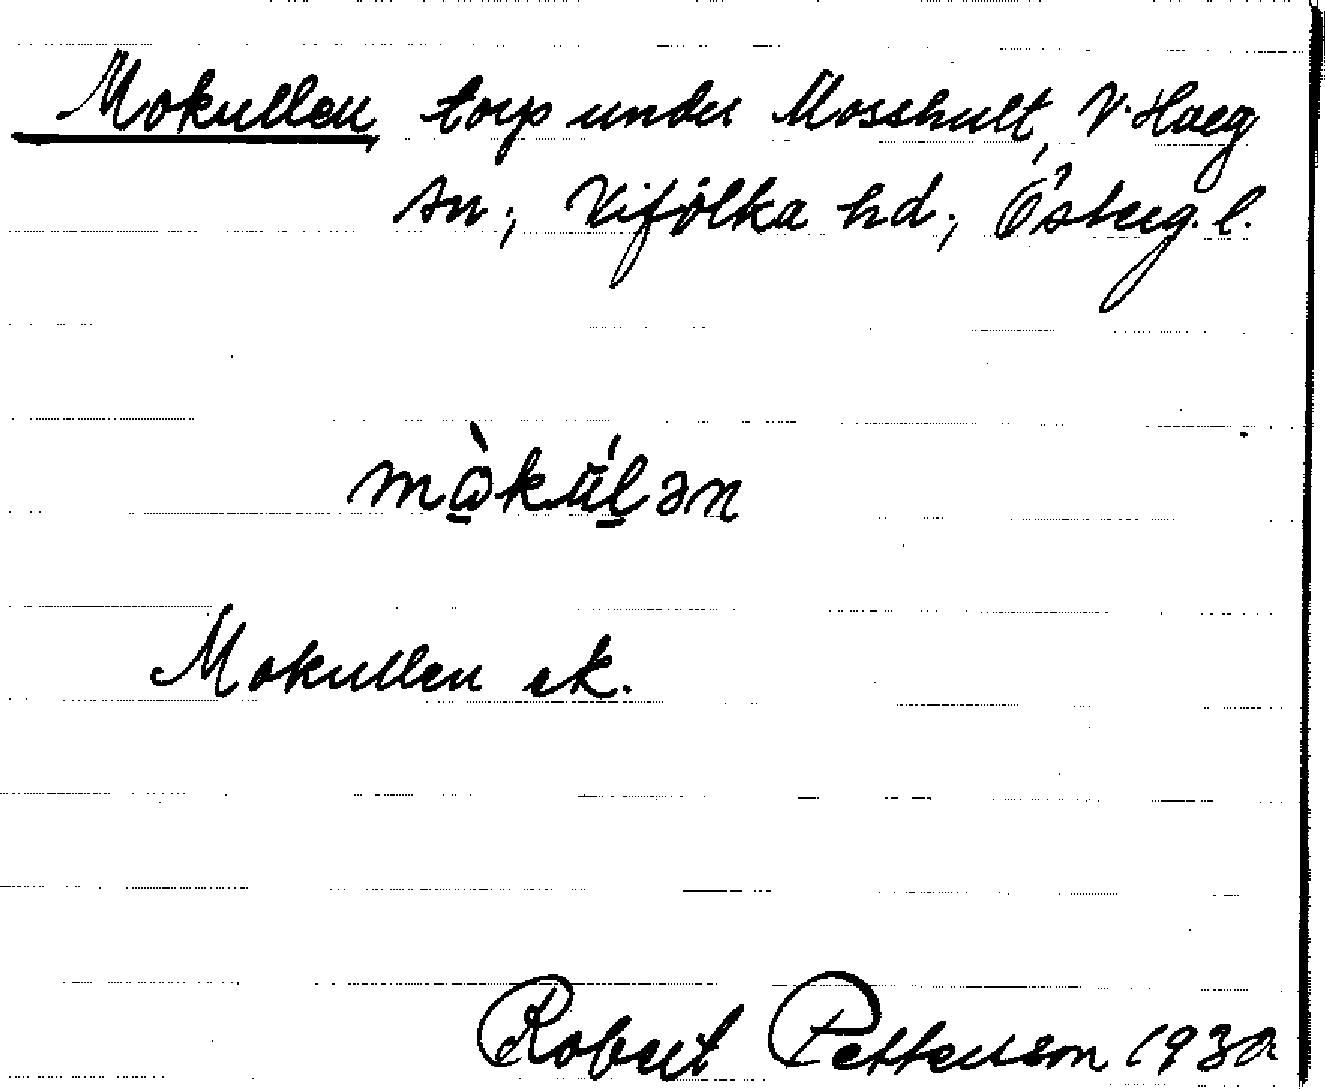 Mokullen, torp under Mosshult, V. Harg
sn.; Vifolka hd.; Österg. l.
mὼkǘlən
Mokullen ek.
Robert Petterson 1930